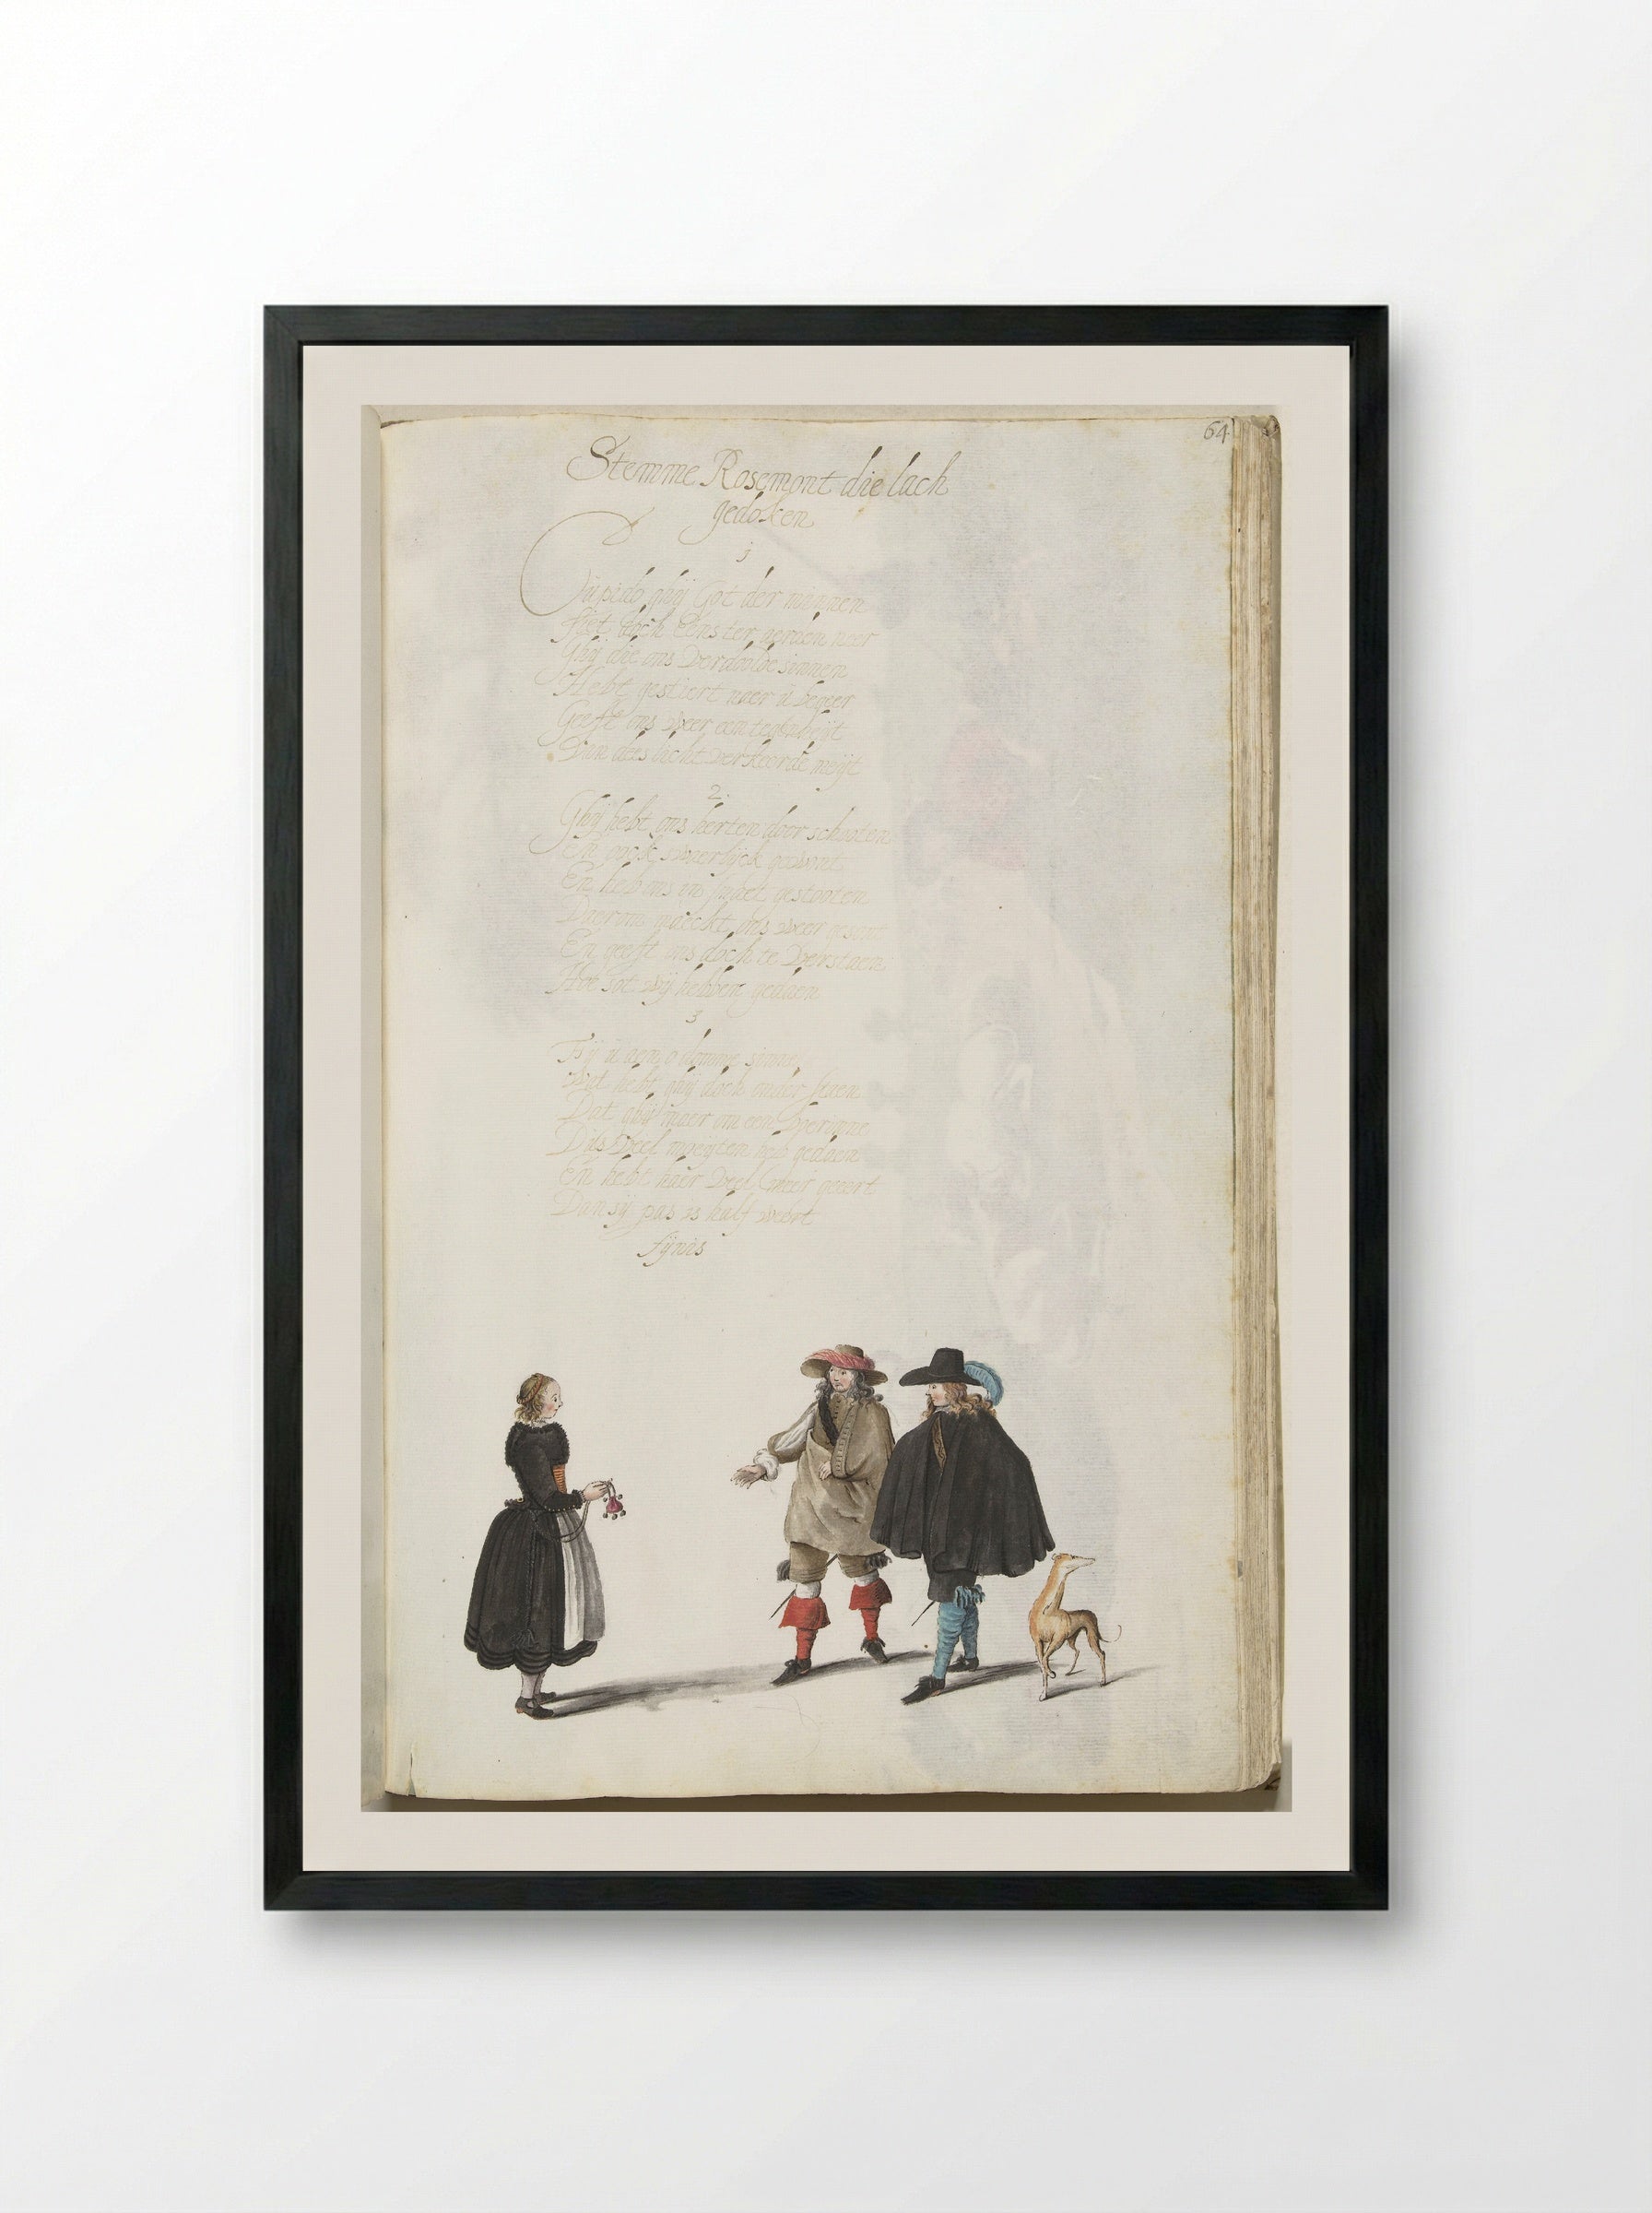 64
Stemme Rosemont die lach
gedoken
j
Cupido ghij Got der minnen
doch eens ter neer
Ghij die ons verdoolde sinnen
Hebt gestiert naer u begeer
Geeft ons weer een
Van dees licht verkeerde meijt
2.
Ghij hebt ons herten door schooten
En oock swaerlijck gewont
En heb ons in gestooten
Daerom maeckt ons weer gesont
En geeft ons doch te verstaen
Hoe sot wij hebben gedaen
3
Fij u aen o domme sinnen
Wat hebt ghij doch onder staen
Dat ghij maer om een
Dus veel moeijten heb gedaen
En hebt haer veel meer geeert
Dan sij pas is half weert
fijnis